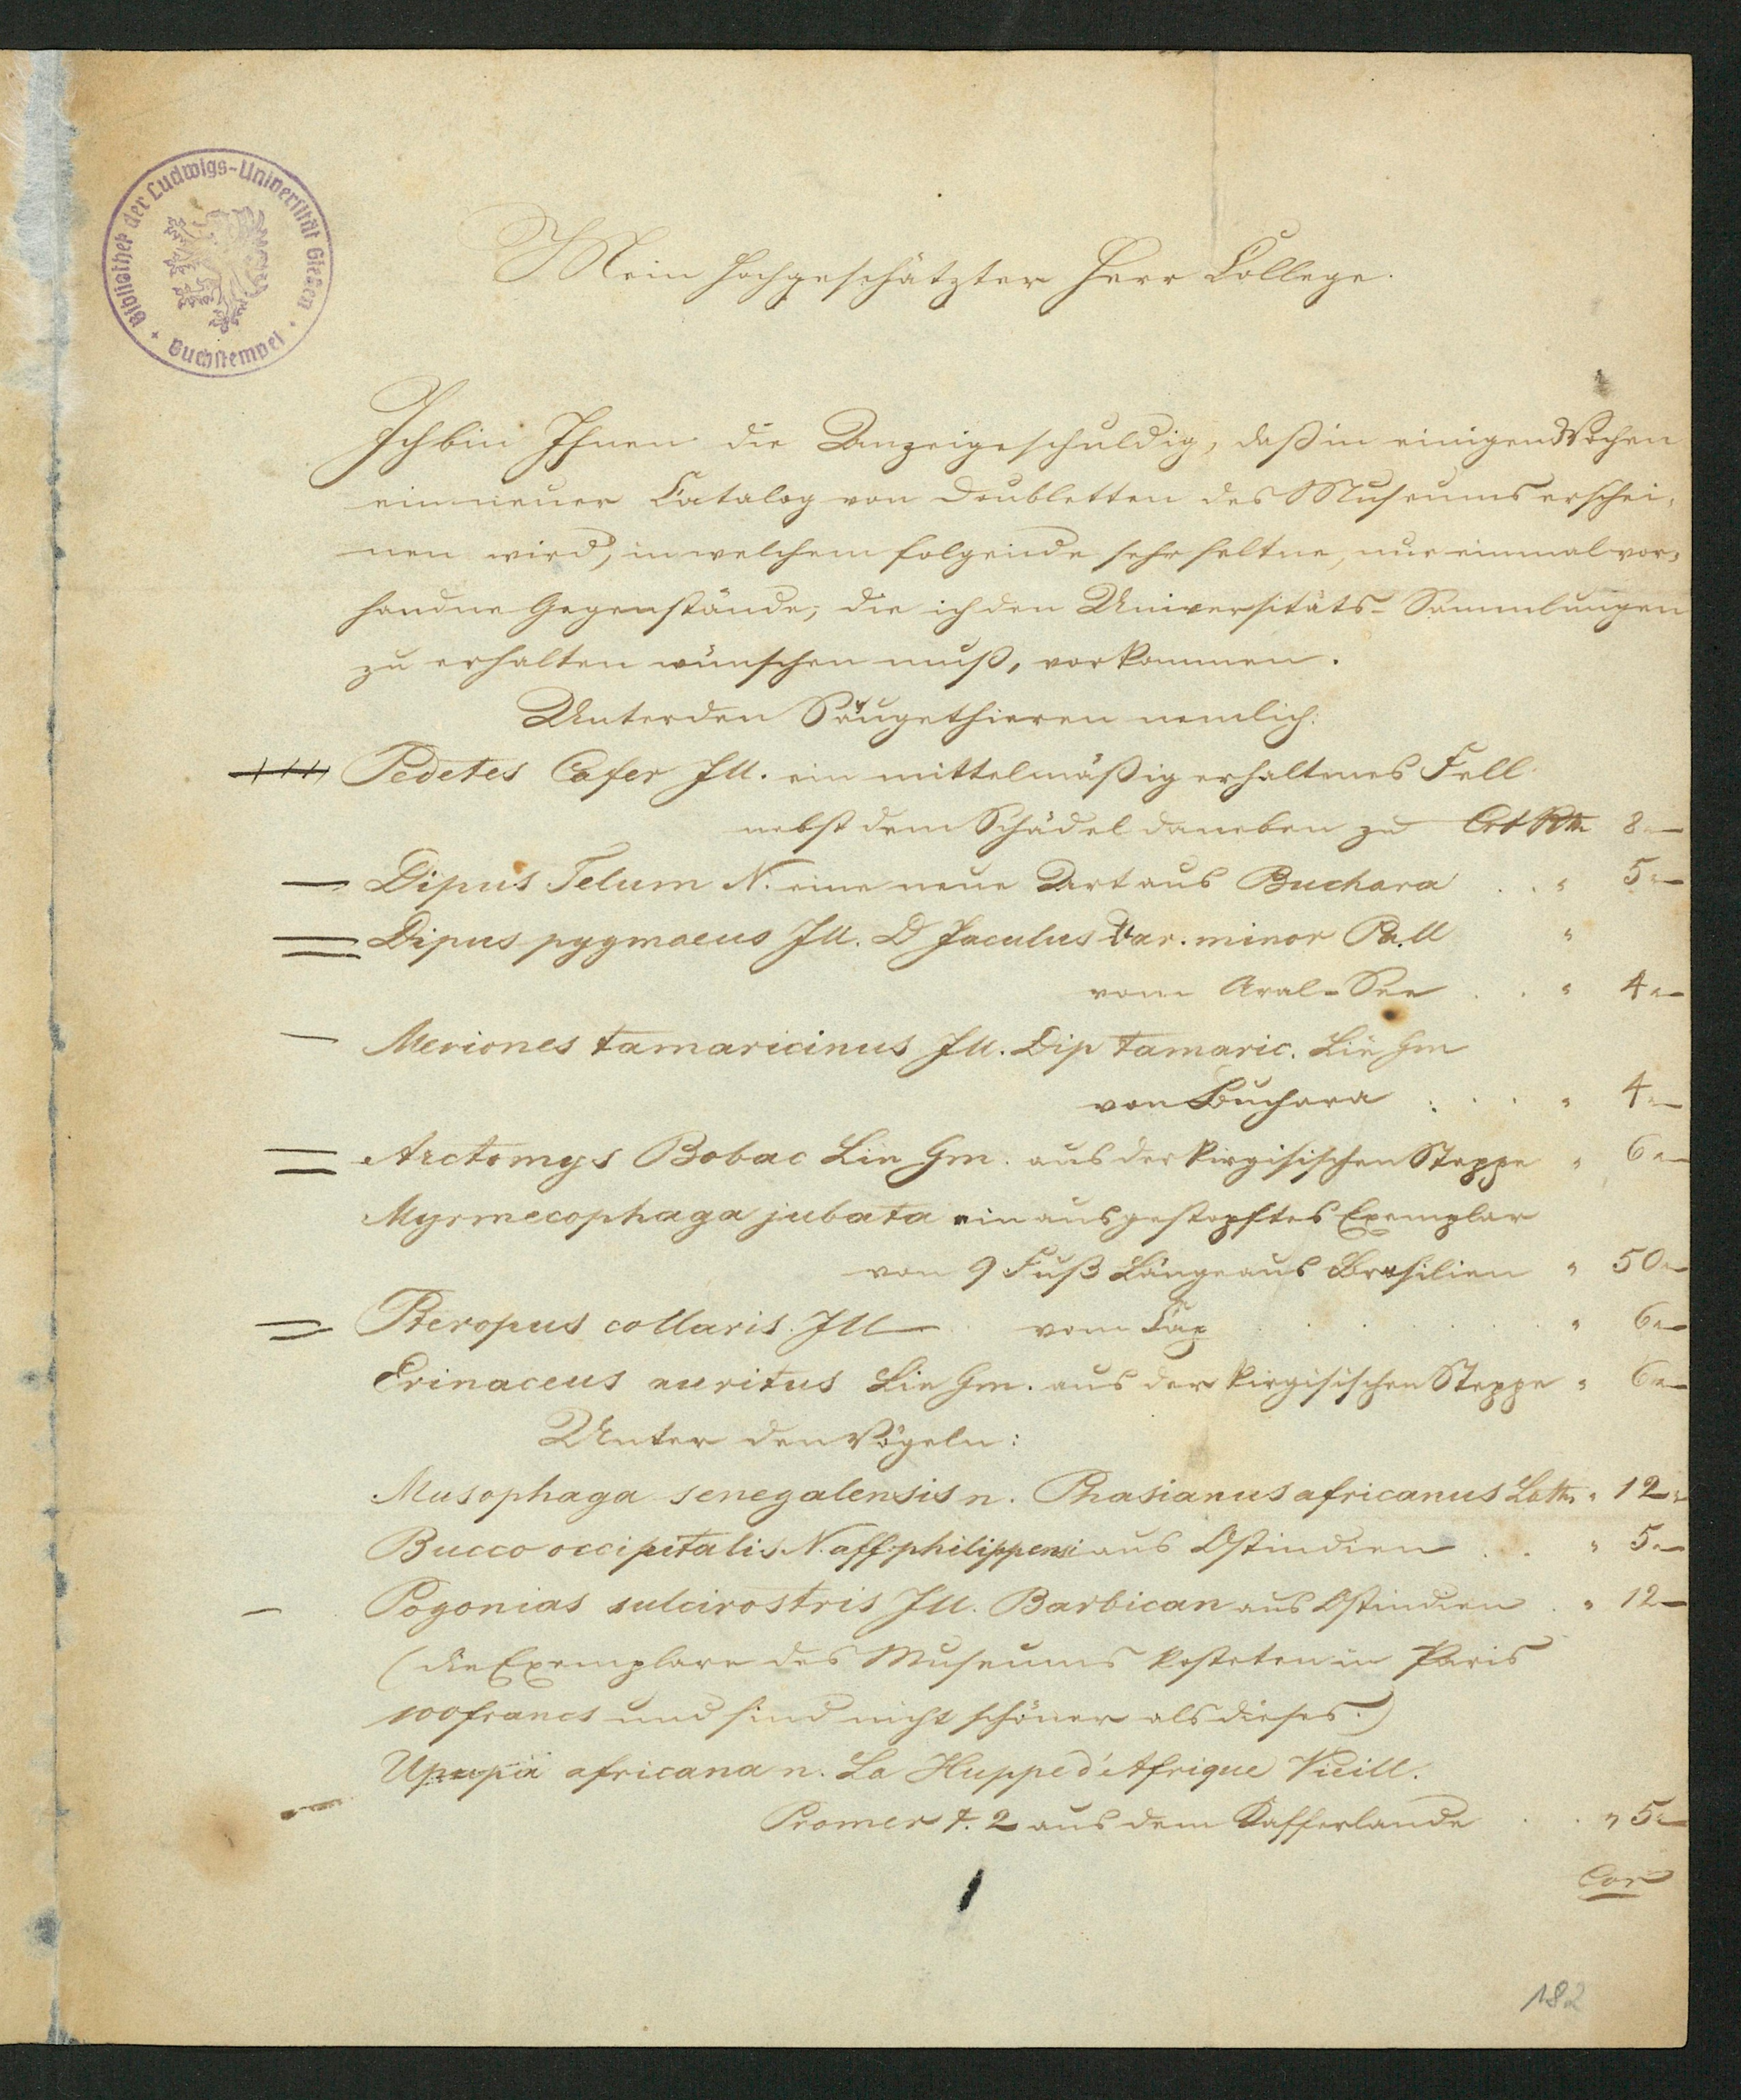 Bibliothek der Ludwigs-Universität Gießen
Buchstempel
Mein hochgeschätzter Herr College.
Ich bin Ihnen die Anzeige schuldig, daß in einigen Wochen
ein neuer Catalog von Doubletten des Museums erschei-
nen wird, in welchem folgende sehr seltne, nur einmal vor-
handne Gegenstände, die ich den Universitäts-Sammlungen
zu erhalten wünschen muß, vorkommen.
Unter den Säugethieren nemlich:
Pedetes Cafer Ill. ein mittelmäßig erhaltenes Fell
nebst dem Schädel daneben zu Crt Rth 8 „—
Dipus Telum N. eine neue Art aus Buchara . . „ 5 „—
Dipus pygmaeus Ill. D Jaculus Var. minor Pall „
vom Aral-See . . „ 4 „—
Meriones tamaricinus Ill. Dip tamaric. Lin Gm
von Buchara . . . „ 4 „—
Arctomys Bobac Lin Gm. aus der kirgisischen Steppe „ 6 „—
Myrmecophaga jubata ein ausgestopftes Exemplar
von 9 Fuß Länge aus Brasilien „ 50 „—
Pteropus collaris Ill vom Cap . . . . „ 6 „—
Erinaceus auritus Lin Gm. aus der kirgisischen Steppe „ 6 „—
Unter den Vögeln:
Musophaga senegalensis n. Phasianus africanus Lath. „ 12 „
Bucco occipitalis N. aff. philippensi aus Ostindien . . „ 5 „—
Pogonias sulcirostris Ill. Barbican aus Ostindien . „ 12 —
(die Exemplare des Museums kosteten in Paris
100 francs und sind nicht schöner als dieses.)
Upupa africana n. La Huppe d'Afrique Vieill.
Promer t. 2 aus dem Kafferlande . . „ 5 „—
Cor
182